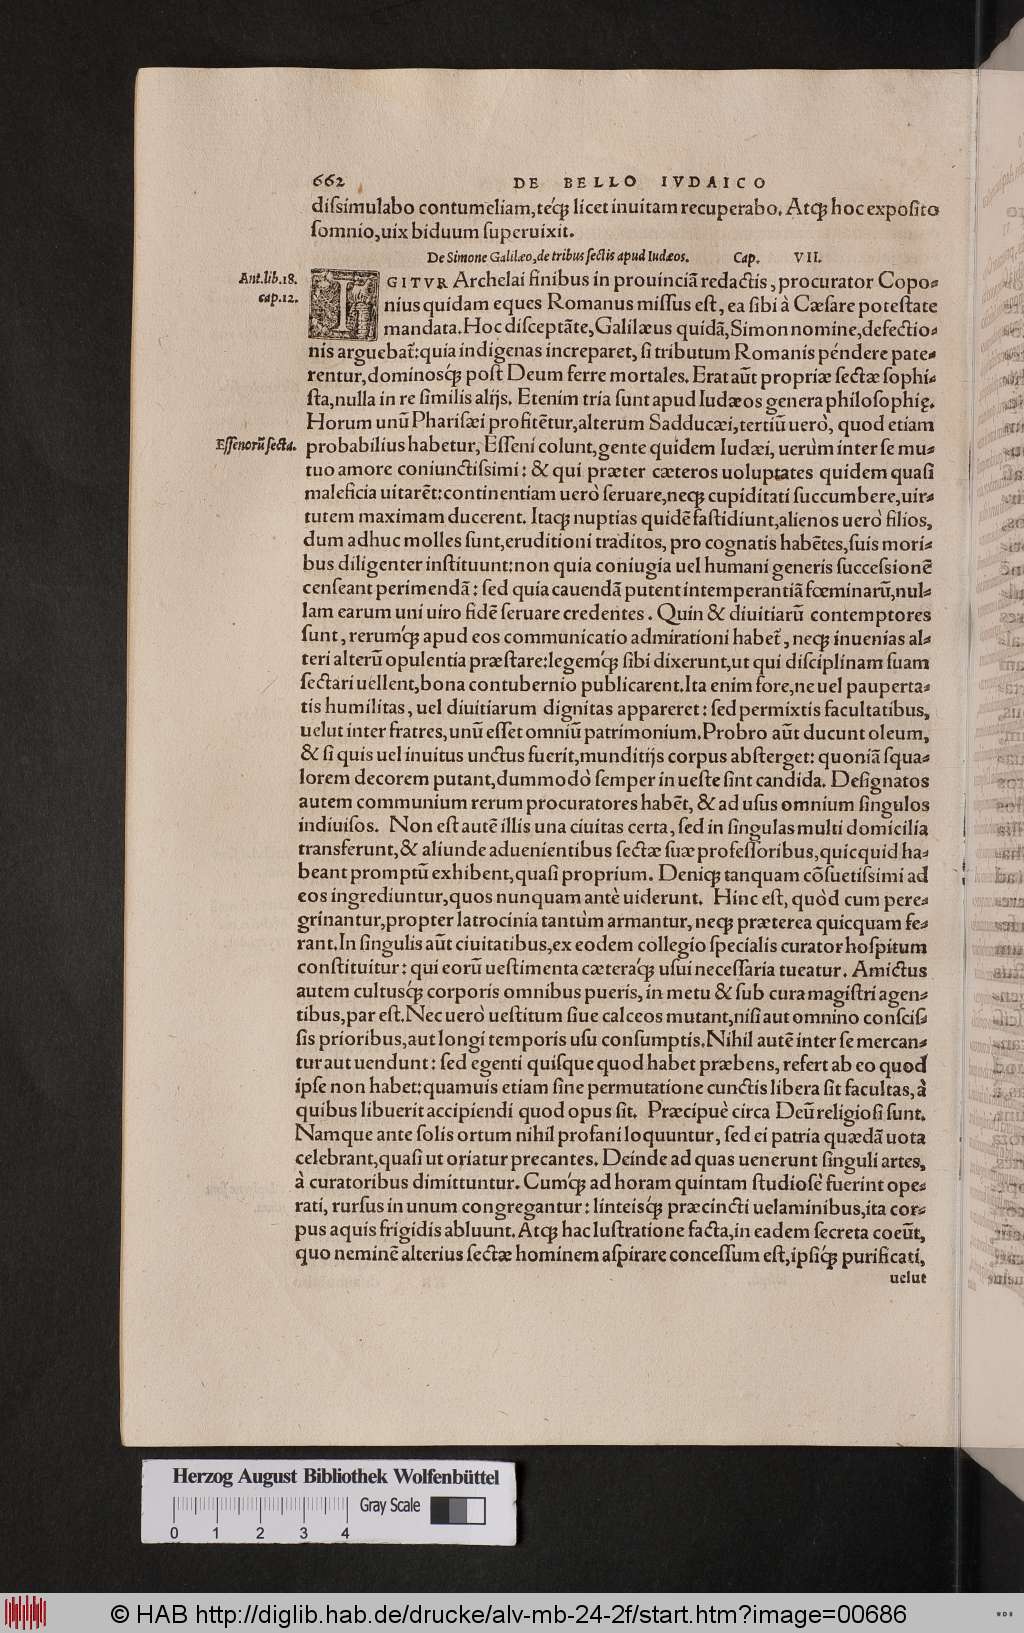 662 DE BELLO IVDAICO
diſsimulabo contumeliam, teq́ꝫ licet inuitam recuperabo. Atqꝫ hoc expoſito
ſomnio, uix biduum ſuperuixit.
De Simone Galilæo, de tribus ſectis apud Iudæos. Cap. VII.
Ant. lib. 18.
cap. 12.
IGITVR Archelai finibus in prouinciā redactis, procurator Copo⸗
nius quidam eques Romanus miſſus eſt, ea ſibi à Cæſare poteſtate
mandata. Hoc diſceptāte, Galilæus quidā, Simon nomine, defectio⸗
nis arguebat̃: quia indigenas increparet, ſi tributum Romanis péndere pate⸗
rentur, dominosq́ꝫ poſt Deum ferre mortales. Erat aūt propriæ ſectæ ſophi⸗
ſta, nulla in re ſimilis alijs. Etenim tria ſunt apud Iudæos genera philoſophię.
Horum unū Phariſæi profitētur, alterum Sadducæi, tertiū uerò, quod etiam
Eſſenorū ſecta.
probabilius habetur, Eſſeni colunt, gente quidem Iudæi, uerùm inter ſe mu⸗
tuo amore coniunctiſsimi: & qui præter cæteros uoluptates quidem quaſi
maleficia uitarēt: continentiam uerò ſeruare, neqꝫ cupiditati ſuccumbere, uir⸗
tutem maximam ducerent. Itaqꝫ nuptias quidē faſtidiunt, alienos uerò filios,
dum adhuc molles ſunt, eruditioni traditos, pro cognatis habētes, ſuis mori⸗
bus diligenter inſtituunt: non quia coniugia uel humani generis ſucceſsionē
cenſeant perimendā: ſed quia cauendā putent intemperantiā fœminarū, nul⸗
lam earum uni uiro fidē ſeruare credentes. Quin & diuitiarū contemptores
ſunt, rerumq́ꝫ apud eos communicatio admirationi habet̃, neqꝫ inuenias al⸗
teri alterū opulentia præſtare: legemq́ꝫ ſibi dixerunt, ut qui diſciplinam ſuam
ſectari uellent, bona contubernio publicarent. Ita enim fore, ne uel pauperta⸗
tis humilitas, uel diuitiarum dignitas appareret: ſed permixtis facultatibus,
uelut inter fratres, unū eſſet omniū patrimonium. Probro aūt ducunt oleum,
& ſi quis uel inuitus unctus fuerit, munditijs corpus abſterget: quoniā ſqua⸗
lorem decorem putant, dummodò ſemper in ueſte ſint candida. Deſignatos
autem communium rerum procuratores habēt, & ad uſus omnium ſingulos
indiuiſos. Non eſt autē illis una ciuitas certa, ſed in ſingulas multi domicilia
transferunt, & aliunde aduenientibus ſectæ ſuæ profeſſoribus, quicquid ha⸗
beant promptū exhibent, quaſi proprium. Deniqꝫ tanquam cōſuetiſsimi ad
eos ingrediuntur, quos nunquam antè uiderunt. Hinc eſt, quòd cum pere⸗
grinantur, propter latrocinia tantùm armantur, neqꝫ præterea quicquam fe⸗
rant. In ſingulis aūt ciuitatibus, ex eodem collegio ſpecialis curator hoſpitum
conſtituitur: qui eorū ueſtimenta cæteraq́ꝫ uſui neceſſaria tueatur. Amictus
autem cultusq́ꝫ corporis omnibus pueris, in metu & ſub cura magiſtri agen⸗
tibus, par eſt. Nec uerò ueſtitum ſiue calceos mutant, niſi aut omnino conſciſ⸗
ſis prioribus, aut longi temporis uſu conſumptis. Nihil autē inter ſe mercan⸗
tur aut uendunt: ſed egenti quiſque quod habet præbens, refert ab eo quod
ipſe non habet: quamuis etiam ſine permutatione cunctis libera ſit facultas, à
quibus libuerit accipiendi quod opus ſit. Præcipuè circa Deū religioſi ſunt.
Namque ante ſolis ortum nihil profani loquuntur, ſed ei patria quædā uota
celebrant, quaſi ut oriatur precantes. Deinde ad quas uenerunt ſinguli artes,
à curatoribus dimittuntur. Cumq́ꝫ ad horam quintam ſtudioſè fuerint ope⸗
rati, rurſus in unum congregantur: linteisq́ꝫ præcincti uelaminibus, ita cor⸗
pus aquis frigidis abluunt. Atqꝫ hac luſtratione facta, in eadem ſecreta coeūt,
quo neminē alterius ſectæ hominem aſpirare conceſſum eſt, ipſiq́ꝫ purificati,
uelut
Herzog August Bibliothek Wolfenbüttel
Gray Scale
0 1 2 3 4
© HAB http://diglib.hab.de/drucke/alv-mb-24-2f/start.htm?image=00686